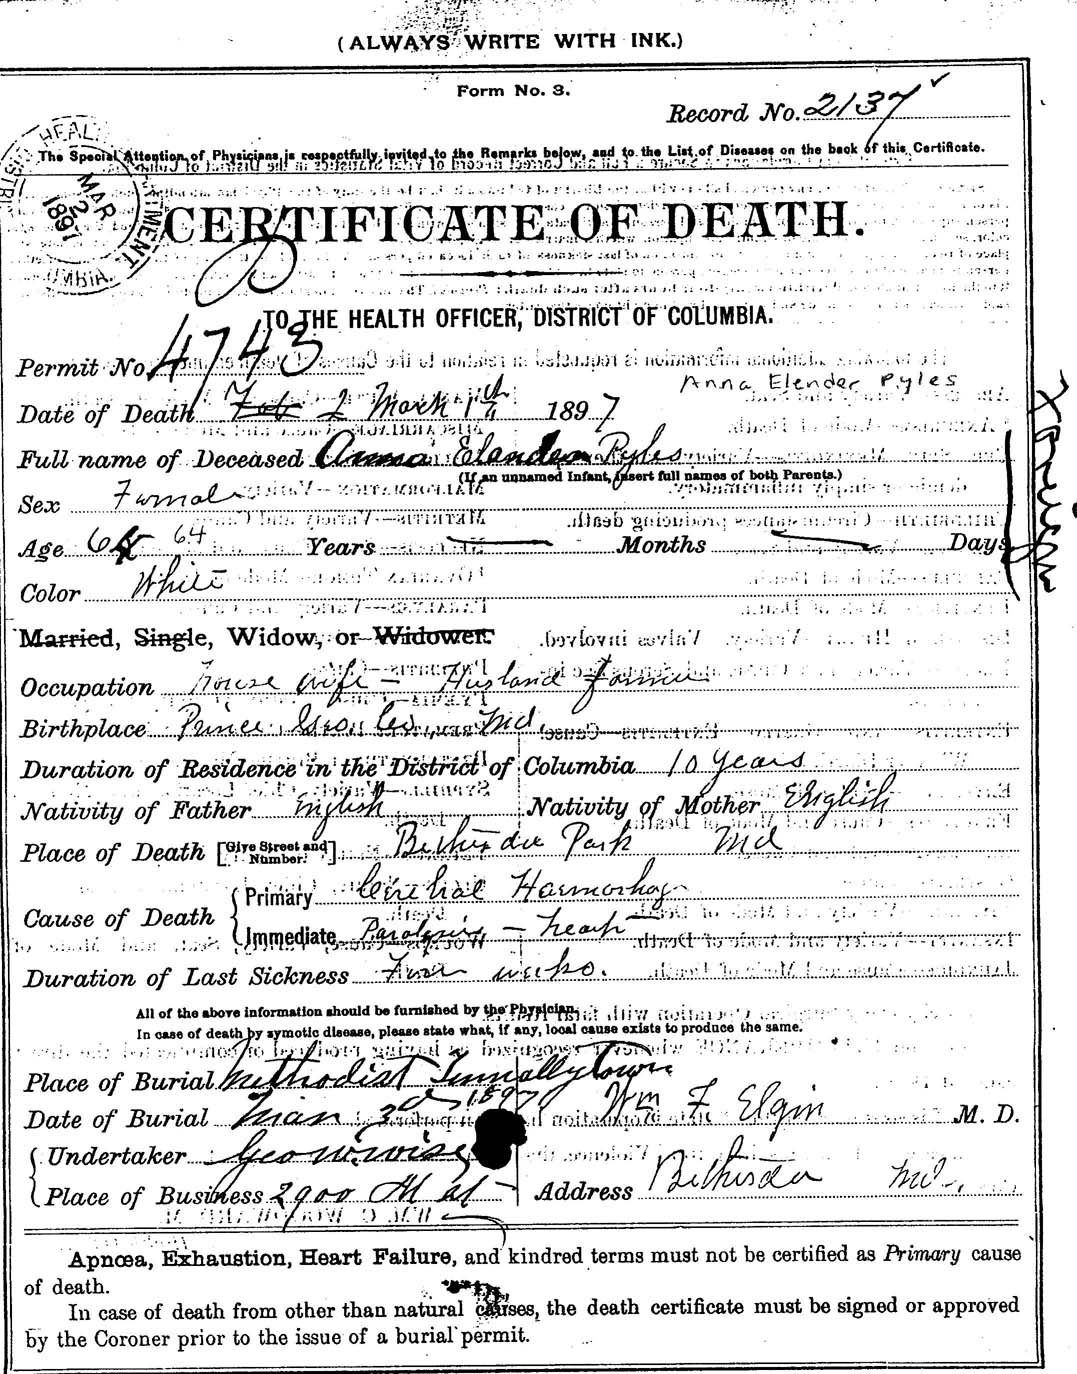 (ALWAYS WRITE WITH INK.)
Form No. 3.
Record No. 2137
The Special Attention of Physicians is respectfully invited to the Remarks below, and to the List of Diseases on the back of this Certificate.
HEAL
MAR 2 1897
CERTIFICATE OF DEATH.
TO THE HEALTH OFFICER, DISTRICT OF COLUMBIA.
Permit No. 4743
Anna Elender Pyles
Date of Death Feb 2 March 1st 1897
Full name of Deceased Anna Elender Pyles
(If an unnamed Infant, insert full names of both Parents.)
Sex Female
Age 64 Years Months Days
Color White
Married, Single, Widow, or Widower.
Occupation House wife – Husband farmer
Birthplace Prince Geo. Co, Md.
Duration of Residence in the District of Columbia 10 Years
Nativity of Father English Nativity of Mother English
Place of Death [Give Street and Number.] Bethesda Park Md
Cause of Death Primary Cerebral Haemorhag
Immediate Paralysis – Heart
Duration of Last Sickness weeks.
All of the above information should be furnished by the Physician.
In case of death by symotic disease, please state what, if any, local cause exists to produce the same.
Place of Burial Methodist Tennallytown
Date of Burial Mar 3d 1897 Wm F Elgin M. D.
Undertaker Geo W. Wise
Place of Business 2900 M st Address Bethesda Md.
Apnœa, Exhaustion, Heart Failure, and kindred terms must not be certified as Primary cause
of death.
In case of death from other than natural causes, the death certificate must be signed or approved
by the Coroner prior to the issue of a burial permit.